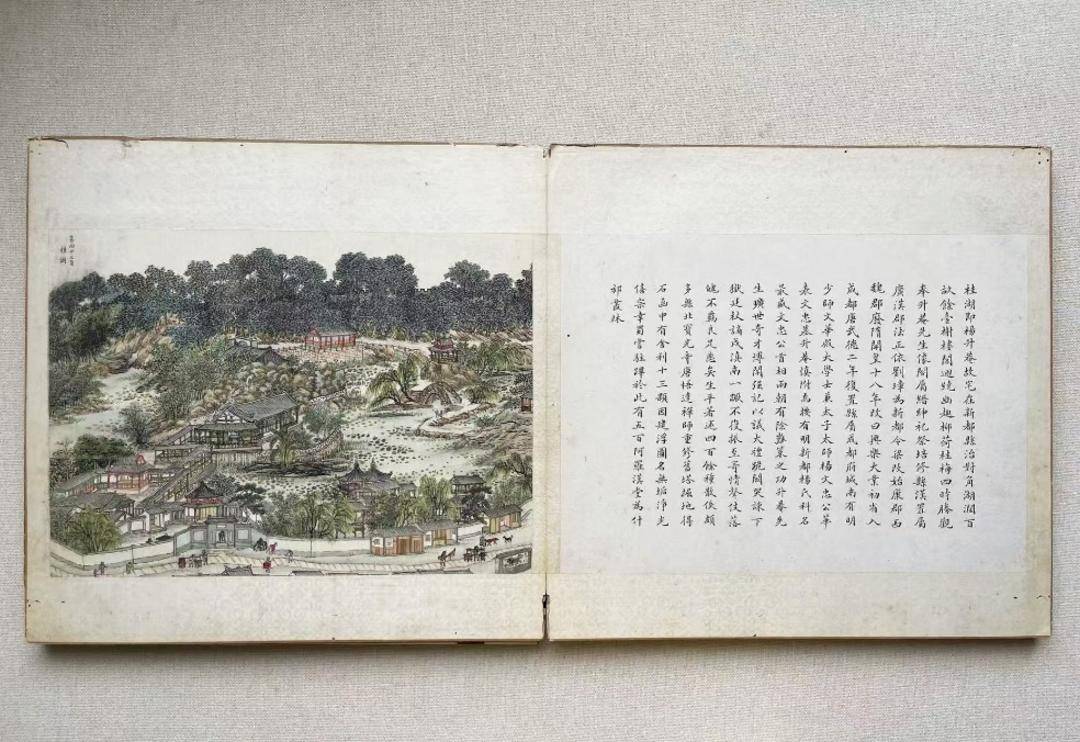 桂湖即楊升菴故宅在新都縣治對湖濶百
畝餘臺榭樓閣迴繞幽趣柳荷桂梅四時勝觀
奉升菴先生像閣屬縉紳祀祭培修縣漢置屬
廣漢郡法正依劉璋為新都令梁改始康郡西
魏郡廢隋開皇十八年改曰興樂大業初省入
成都唐武德二年復置縣屬成都府城南有明
少師文華殿大學士兼太子太師楊文忠公華
表文忠墓升菴慎附焉按有明新都楊氏科名
最盛文忠公首相兩朝有除難策之功升菴先
生曠世奇才博聞强記以議大禮號闕哭諫下
獄廷杖謫戍滇南一蹶不復振至寄情聲伎落
魄不羈良足悲矣生平著述四百餘種散佚頗
多縣北寶光寺唐悟達禪師重修舊塔掘地得
石函中有舍利十三顆因建浮圖名無垢淨光
僖宗幸蜀嘗駐蹕於此有五百阿羅漢堂為什
邡叢林
桂湖